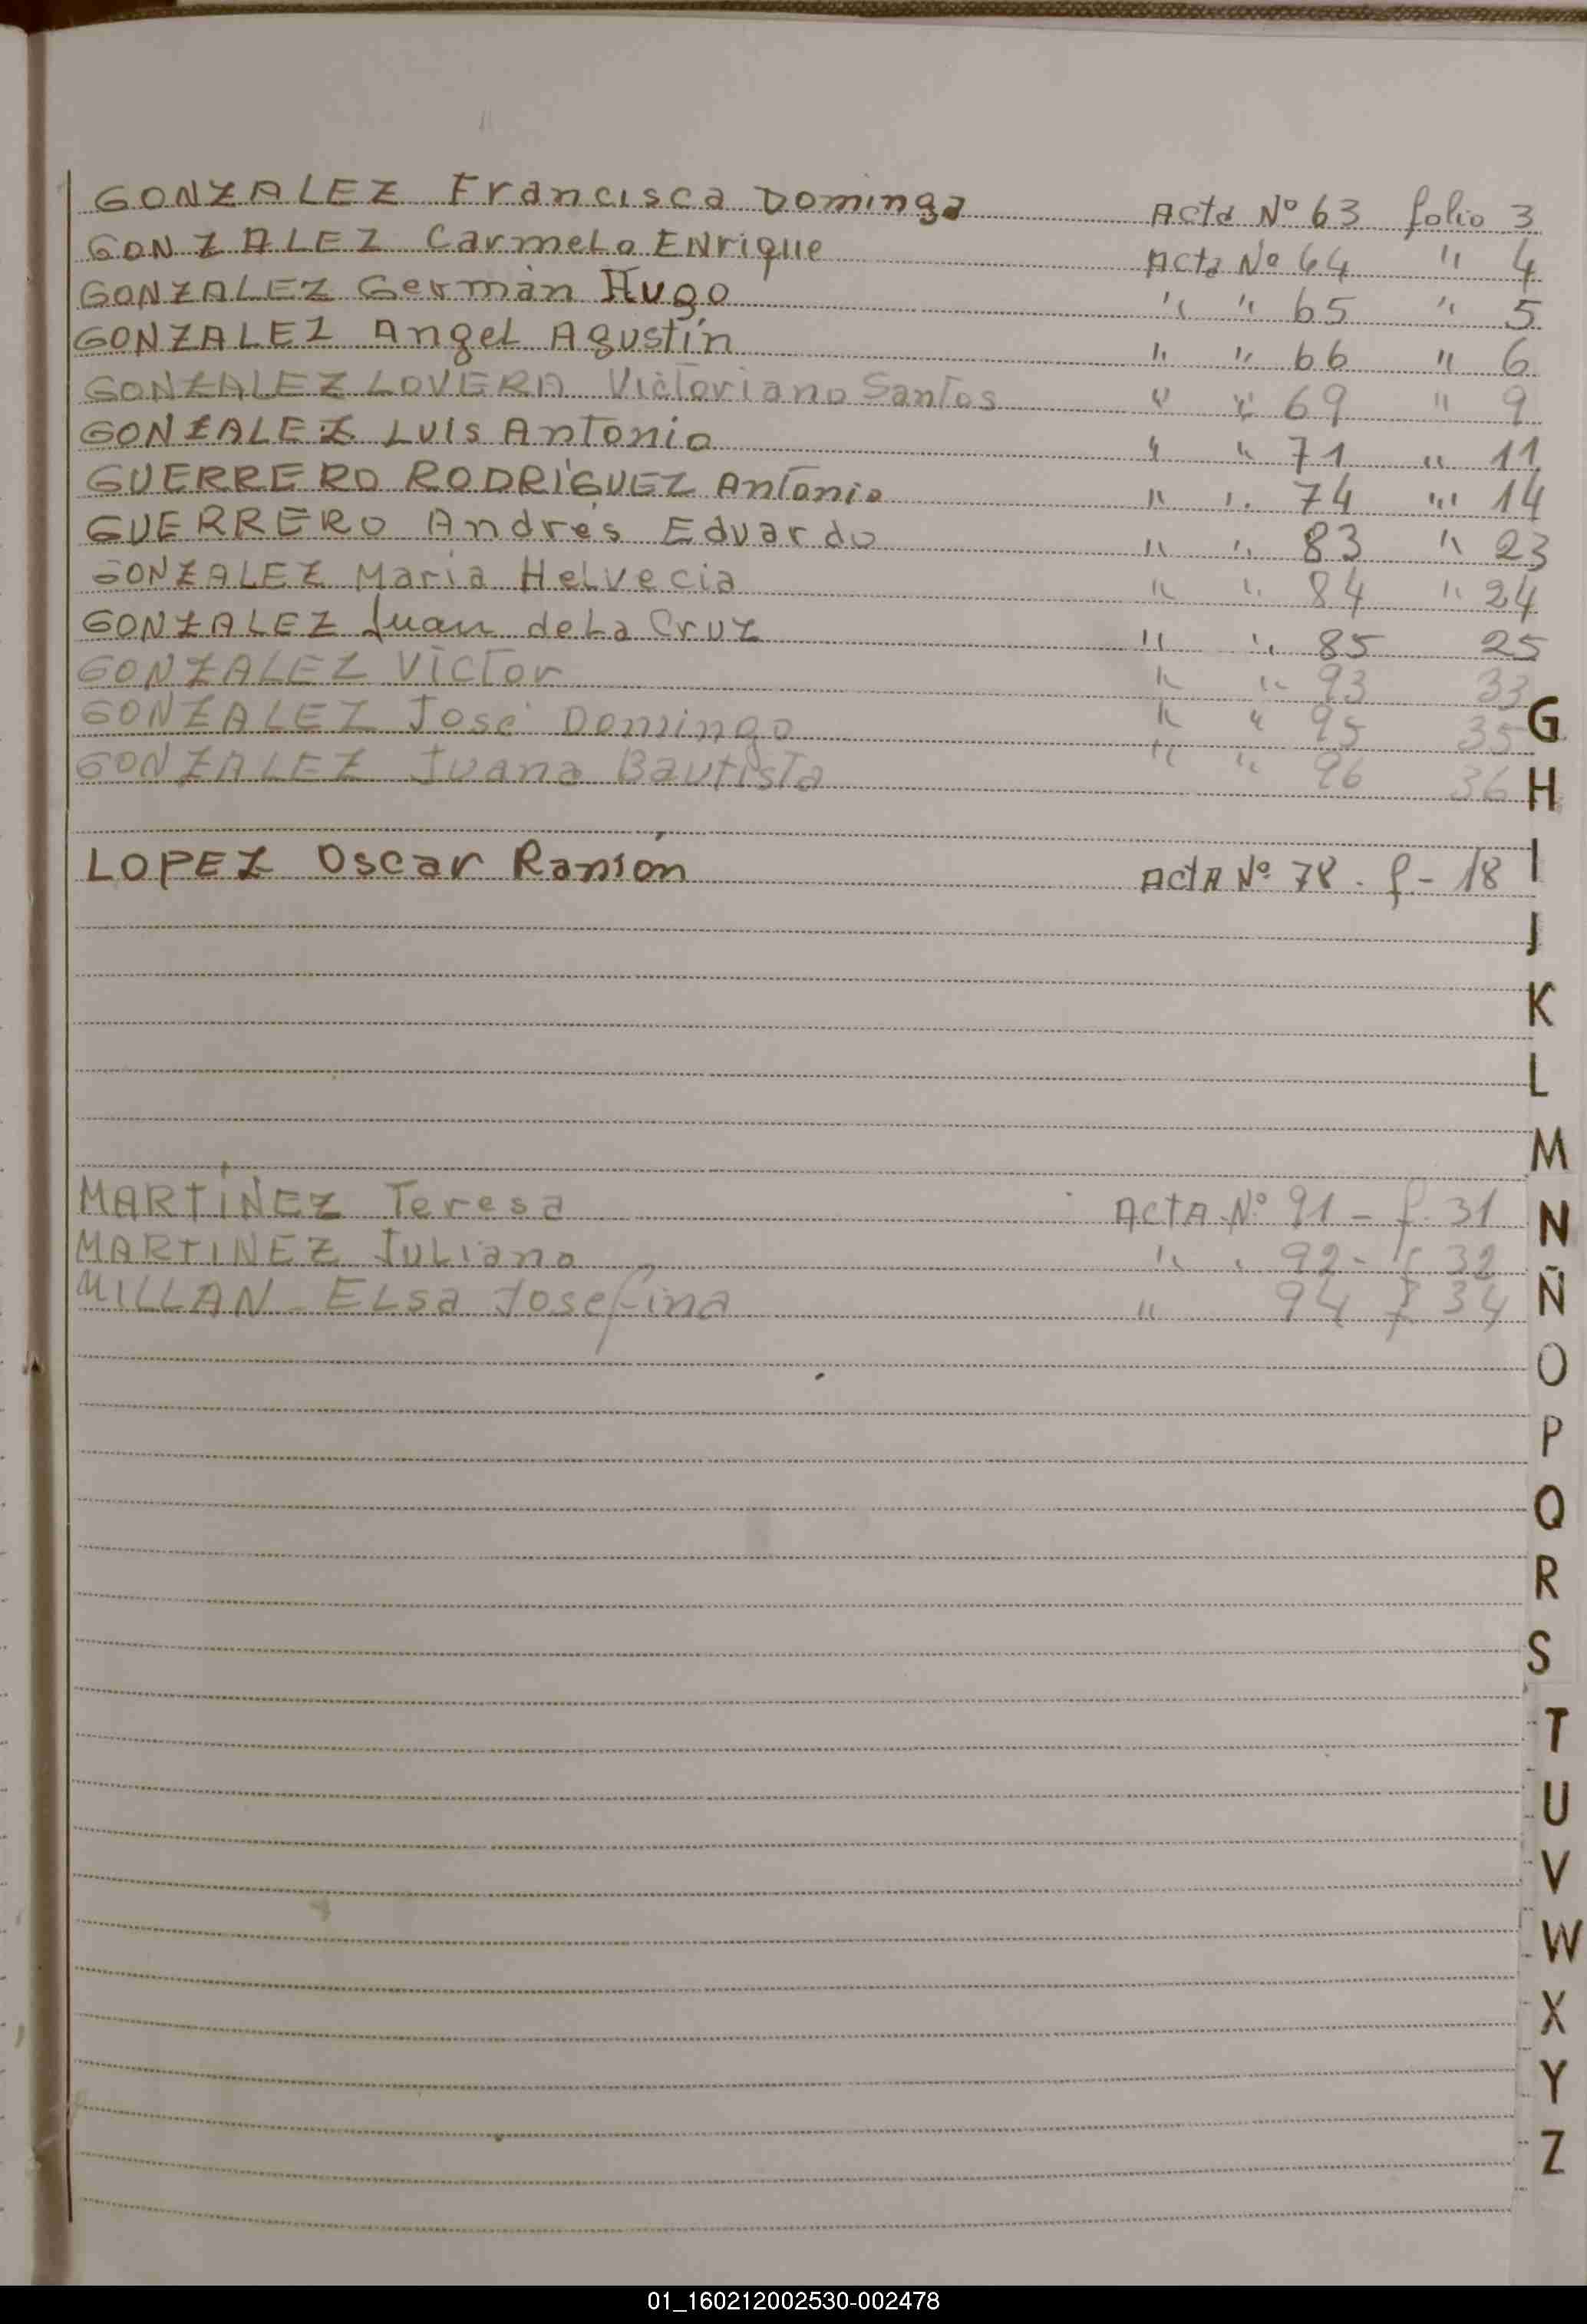 GONZALEZ Francisca Dominga Acta Nº 63 folio 3
GONZALEZ Carmelo ENrique Acta Nº 64 " 4
GONZALEZ Germán Hugo " " 65 " 5
GONZALEZ Angel Agustín " " 66 " 6
GONZALEZ LOVERA Victoriano Santos " " 69 " 9
GONZALEZ Luis Antonio " " 71 " 11
GUERRERO RODRÍGUEZ Antonio " " 74 " 14
GUERRERO Andrés Eduardo " " 83 " 23
GONZALEZ María Helvecia " " 84 " 24
GONZALEZ Juan de La Cruz " " 85 25
GONZALEZ Víctor " " 93 33
GONZALEZ José Domingo " " 95 35
GONZALEZ Juana Bautista " " 96 36
LOPEZ Oscar Ramón ActA Nº 78 . f - 18
MARTÍNEZ Teresa ActA Nº 91 - f. 31
MARTINEZ Juliano " " 92 - f. 32
MILLAN - Elsa Josefina " 94 f 34
G
H
I
J
K
L
M
N
Ñ
O
P
Q
R
S
T
U
V
W
X
Y
Z
01_160212002530-002478